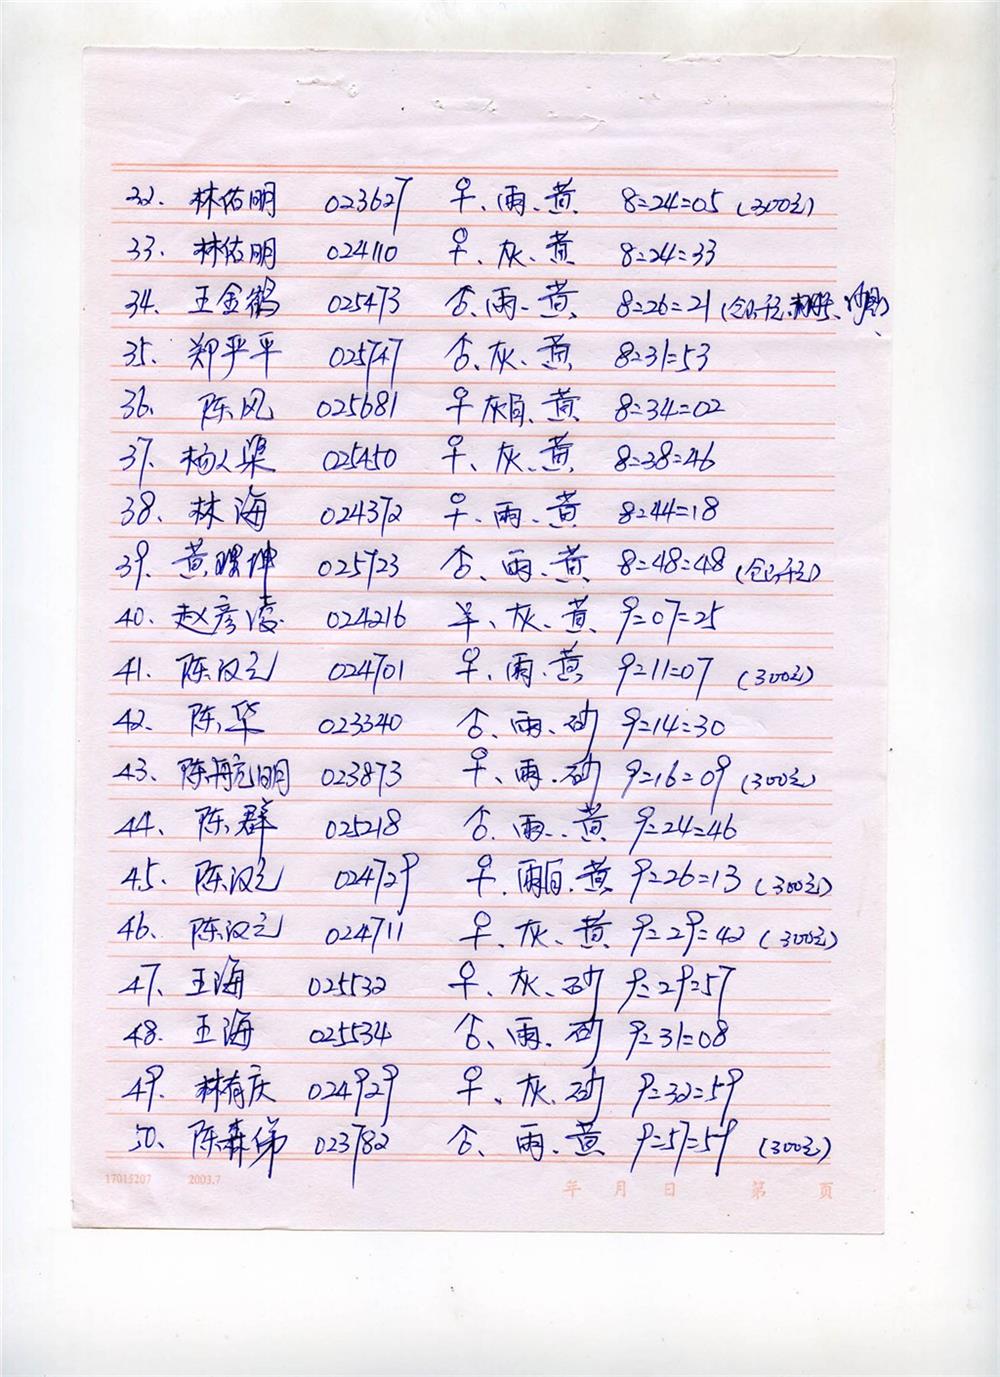 32. 林佑明 023627 ♀、雨、黄 8=24=05 (300元)
33. 林佑明 024110 ♀、灰、黄 8=24=33
34. 王金鹤 025473 合、雨、黄 8=26=21
35. 郑平平 025747 合、灰、黄 8=31=53
36. 陈风 025681 ♀ 灰 黄 8=34=02
37. 杨人梁 025450 ♀、灰、黄 8=38=46
38. 林海 024372 ♀、雨、黄 8=44=18
39. 黄 坤 025723 合、雨、黄 8=48=48
40. 赵彦凌 024216 ♀、灰、黄 9=07=25
41. 陈汉元 024701 ♀、雨、黄 9=11=07 (300元)
42. 陈华 023340 合、雨、砂 9=14=30
43. 陈 明 023873 ♀、雨、砂 9=16=09 (300元)
44. 陈群 025218 合、雨、黄 9=24=46
45. 陈汉元 024729 ♀、雨 黄 9=26=13 (300元)
46. 陈汉元 024711 ♀、灰、黄 9=29=42 (300元)
47. 王海 025532 ♀、灰、砂 9=29=57
48. 王海 025534 合、雨、砂 9=31=08
49. 林有庆 024929 ♀、灰、砂 9=32=59
50. 陈森俤 023782 合、雨、黄 9=57=59 (300元)
17015207 2003.7 年 月 日 第 页